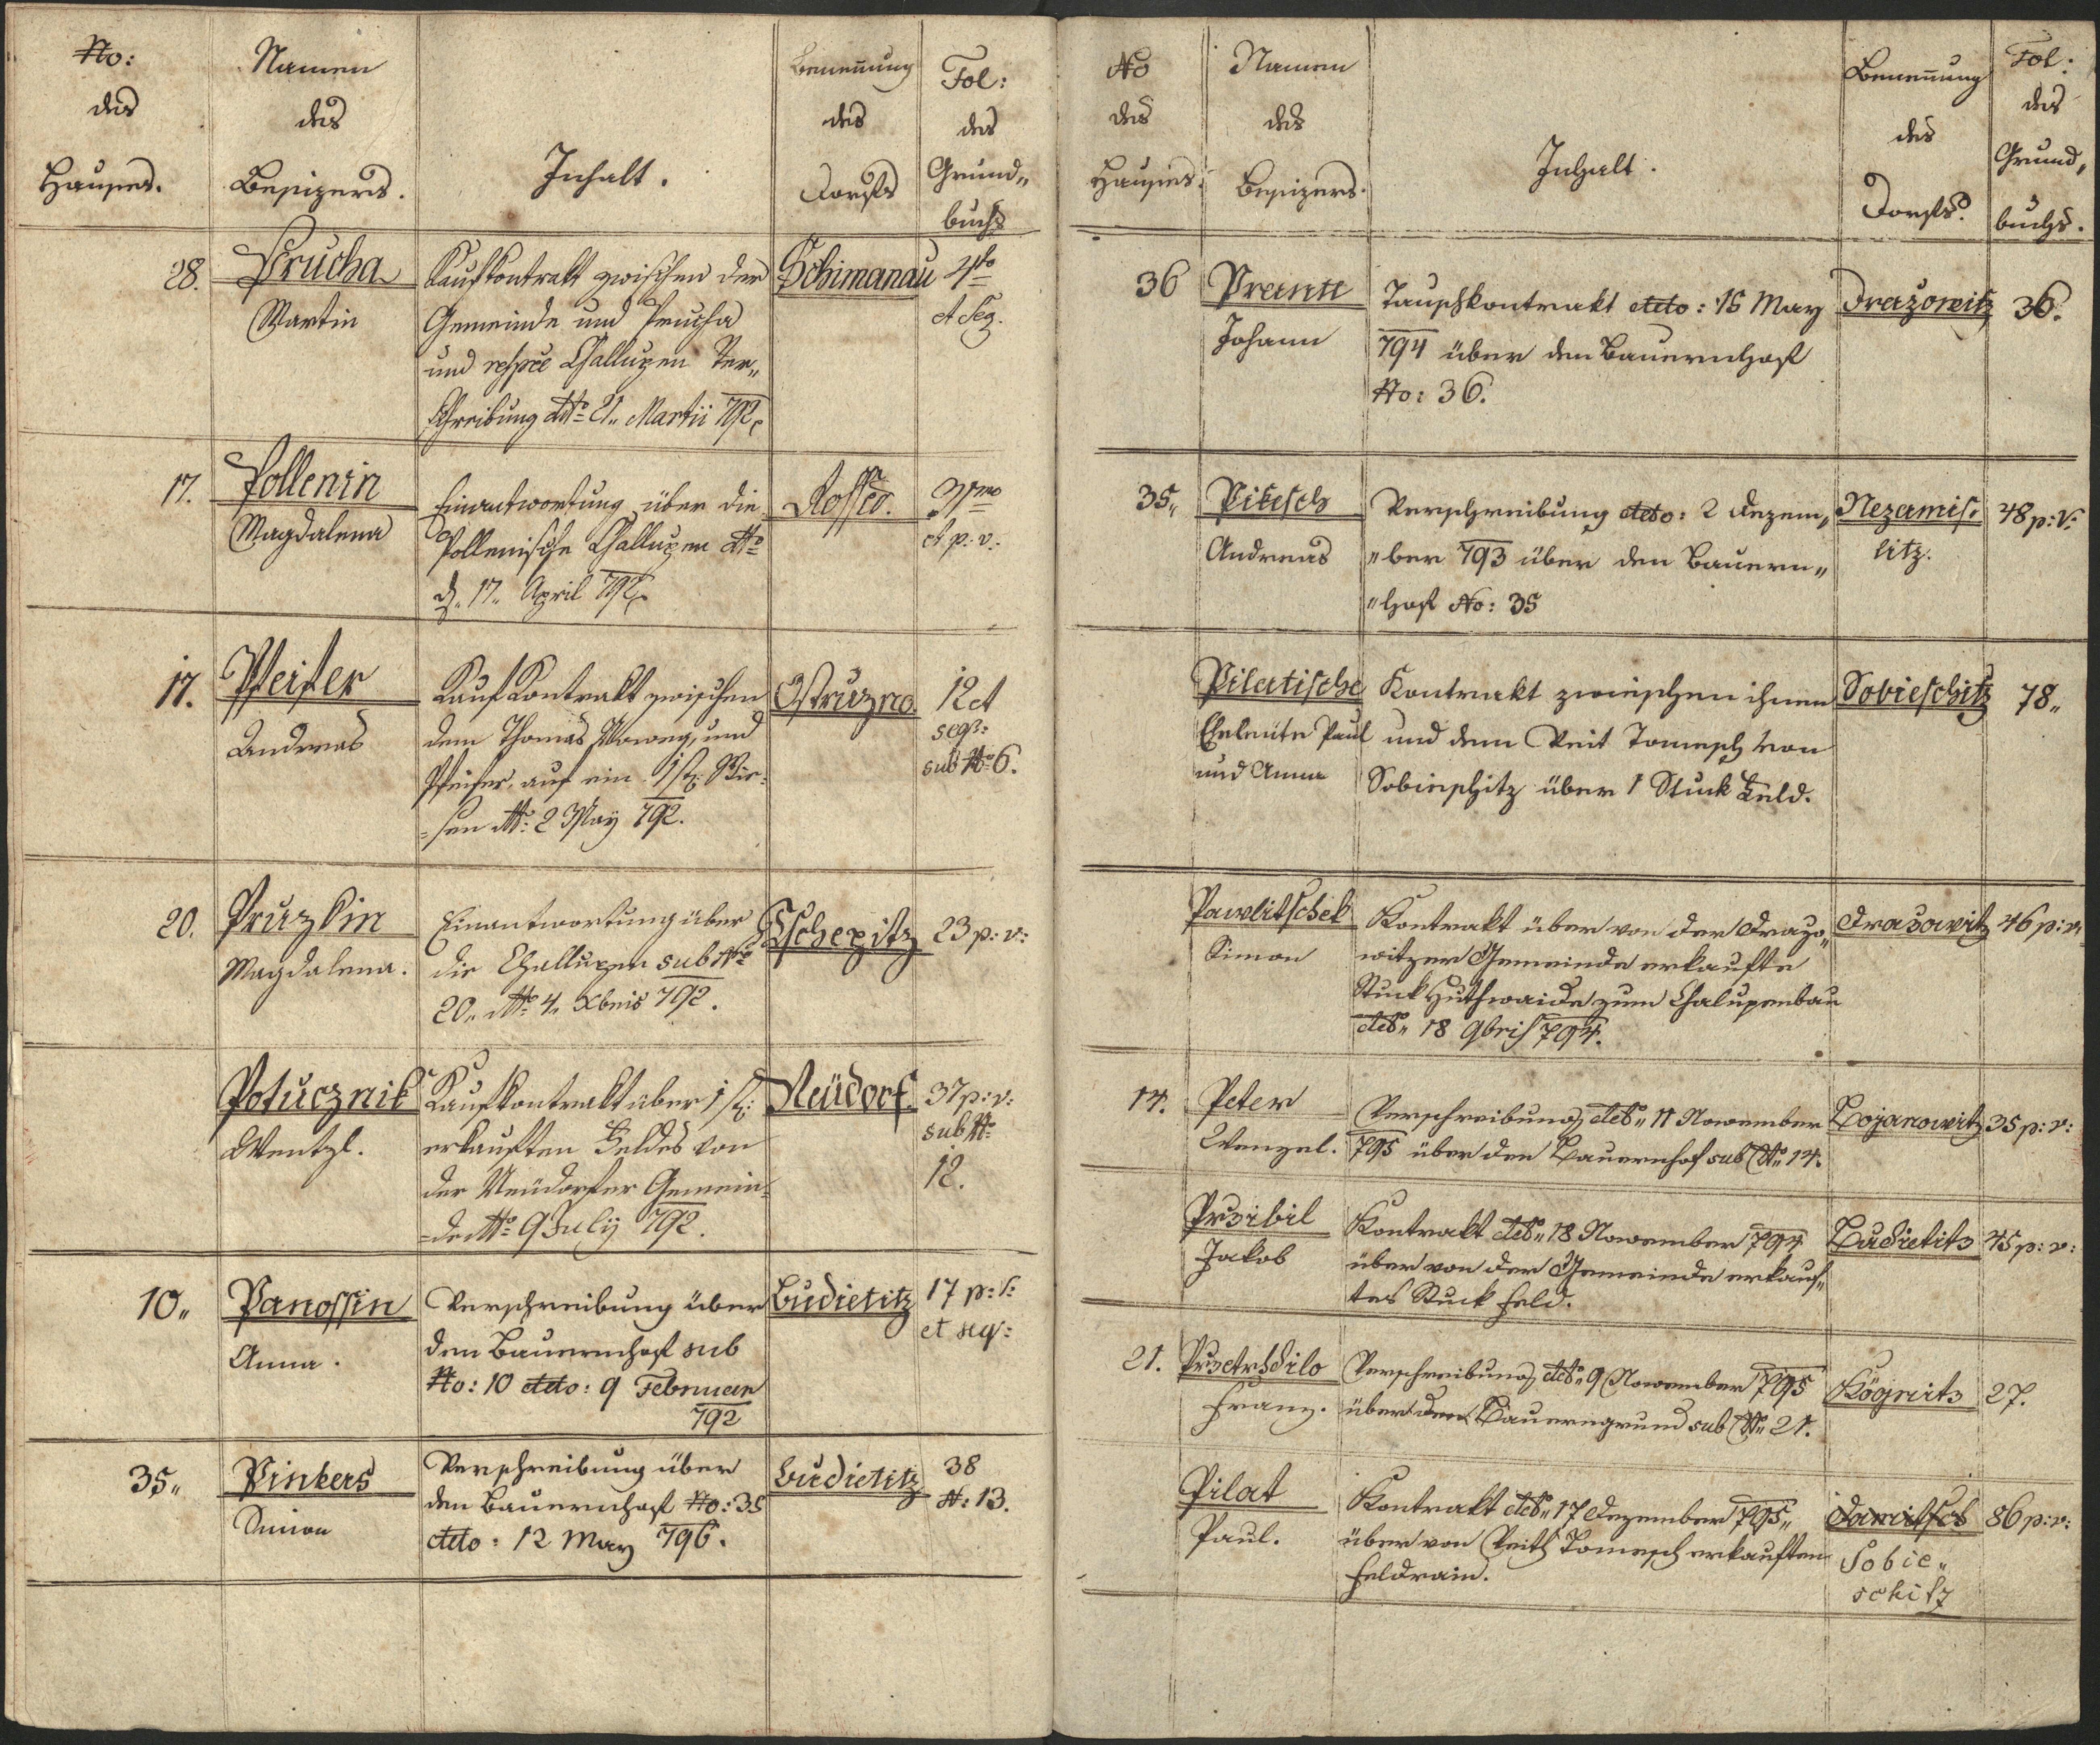 No:
des
Hauses.
Namen
des
Besizers.
Inhalt.
Benennung
des
Dorfs
Fol:
des
Grund„
buchs
28.
Prucha
Martin
Kaufkontrakt zwischen der
Gemeinde und Prucha
und respce Challupen Ver„
schreibung dtto 21„ Martii 792
Schimanau
4to
et seq.
17.
Pollenin
Magdalena
Einantwortung über die
Pollenische Challupen dtto
d. 17„ April 792
Rossed.
31mo
et p: v:
17.
Pfeifer
Andreas
Kauf Kontrakt zwischen
dem Thomas und
Pfeifer, auf ein Wie-
=sen dtto: 2 May 792.
Ostruzno.
12 et
seq:
sub No 6.
20.
Pruzkin
Magdalena.
Einantwortung über
die Challupen sub No
20„ dtto 4„ Xbris 792.
Tschepitz
23 p: v:
Potucznik
Wentzl.
Kaufkontrakt über 1
erkauften Feldes von
der Neüdorfer Gemein=
=de dtto 9 July 792.
Neüdorf.
37 p: v:
sub No
12.
10„
Panossin
Anna.
Verschreibung über
den Bauernhof sub
No: 10 ddto: 9 Februar
792
Budietitz
17 p: v:
et seq:
35„
Pinkers
Simon
Verschreibung über
den Bauernhof No: 35
ddto: 12 May 796.
Budietitz
38
N: 13.
No
des
Hauses.
Namen
des
Besizers.
Inhalt.
Benennung
des
Dorfs.
Fol:
des
Grund„
buchs.
36
Prantl
Johann
Tauschkontrakt ddto: 16 May
794 über den Bauernhof
No: 36.
Drazowitz
36.
35„
Pikesch
Andreas
Verschreibung ddto: 2 Dezem„
„ber 793 über den Bauern„
„hof No: 35
Nezamis:
litz.
48 p: v:
Pilatische
Eheleute Paul
und Anna
Kontrakt zwischen ihnen
und dem Veit Tomesch von
Sobieschitz über 1 Stuck Feld.
Sobieschitz
78„
Pawlitschek
Simon
Kontrakt über von der Drazo„
witzer Gemeinde erkaufte
Stuck Huthwaide zum Chalupenbau
ddto„ 18 9bris 794.
Drazowitz
46 p: v:
14.
Peter
Wenzel.
Verschreibung ddto„ 11 November
795 über den Bauernhof sub No 14.
Bojanowitz
35 p: v:
Przibil
Jakob
Kontrakt ddto„ 18 November 794
über von der Gemeinde erkauf„
tes Stuck Feld.
Budietitz
45 p: v:
21.
Franz.
Verschreibung ddto„ 9 November 795
über den Bauerngrund sub No 21.
Kögnitz
27.
Pilat
Paul.
Kontrakt ddto„ 17 Dezember 795„
über von Veith Tomesch erkauften
Feldrain.
Sobie„
schitz
86 p: v: